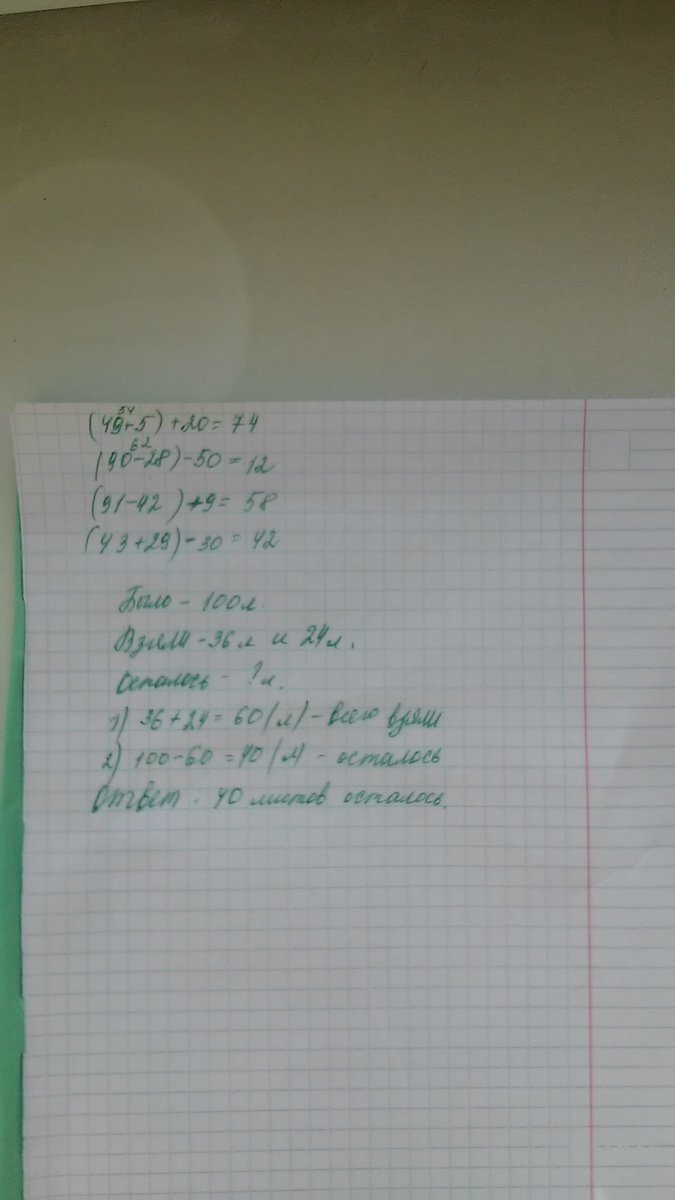 54
(49+5)+20=74
62
(90-28)-50=12
(91-42)+9=58
(43+29)-30=42
Было - 100л.
Взяли - 36л и 24л.
Осталось - ?л.
1) 36+24=60(л) - всего взяли
2) 100-60=40(л) - осталось
Ответ: 40 листов осталось.